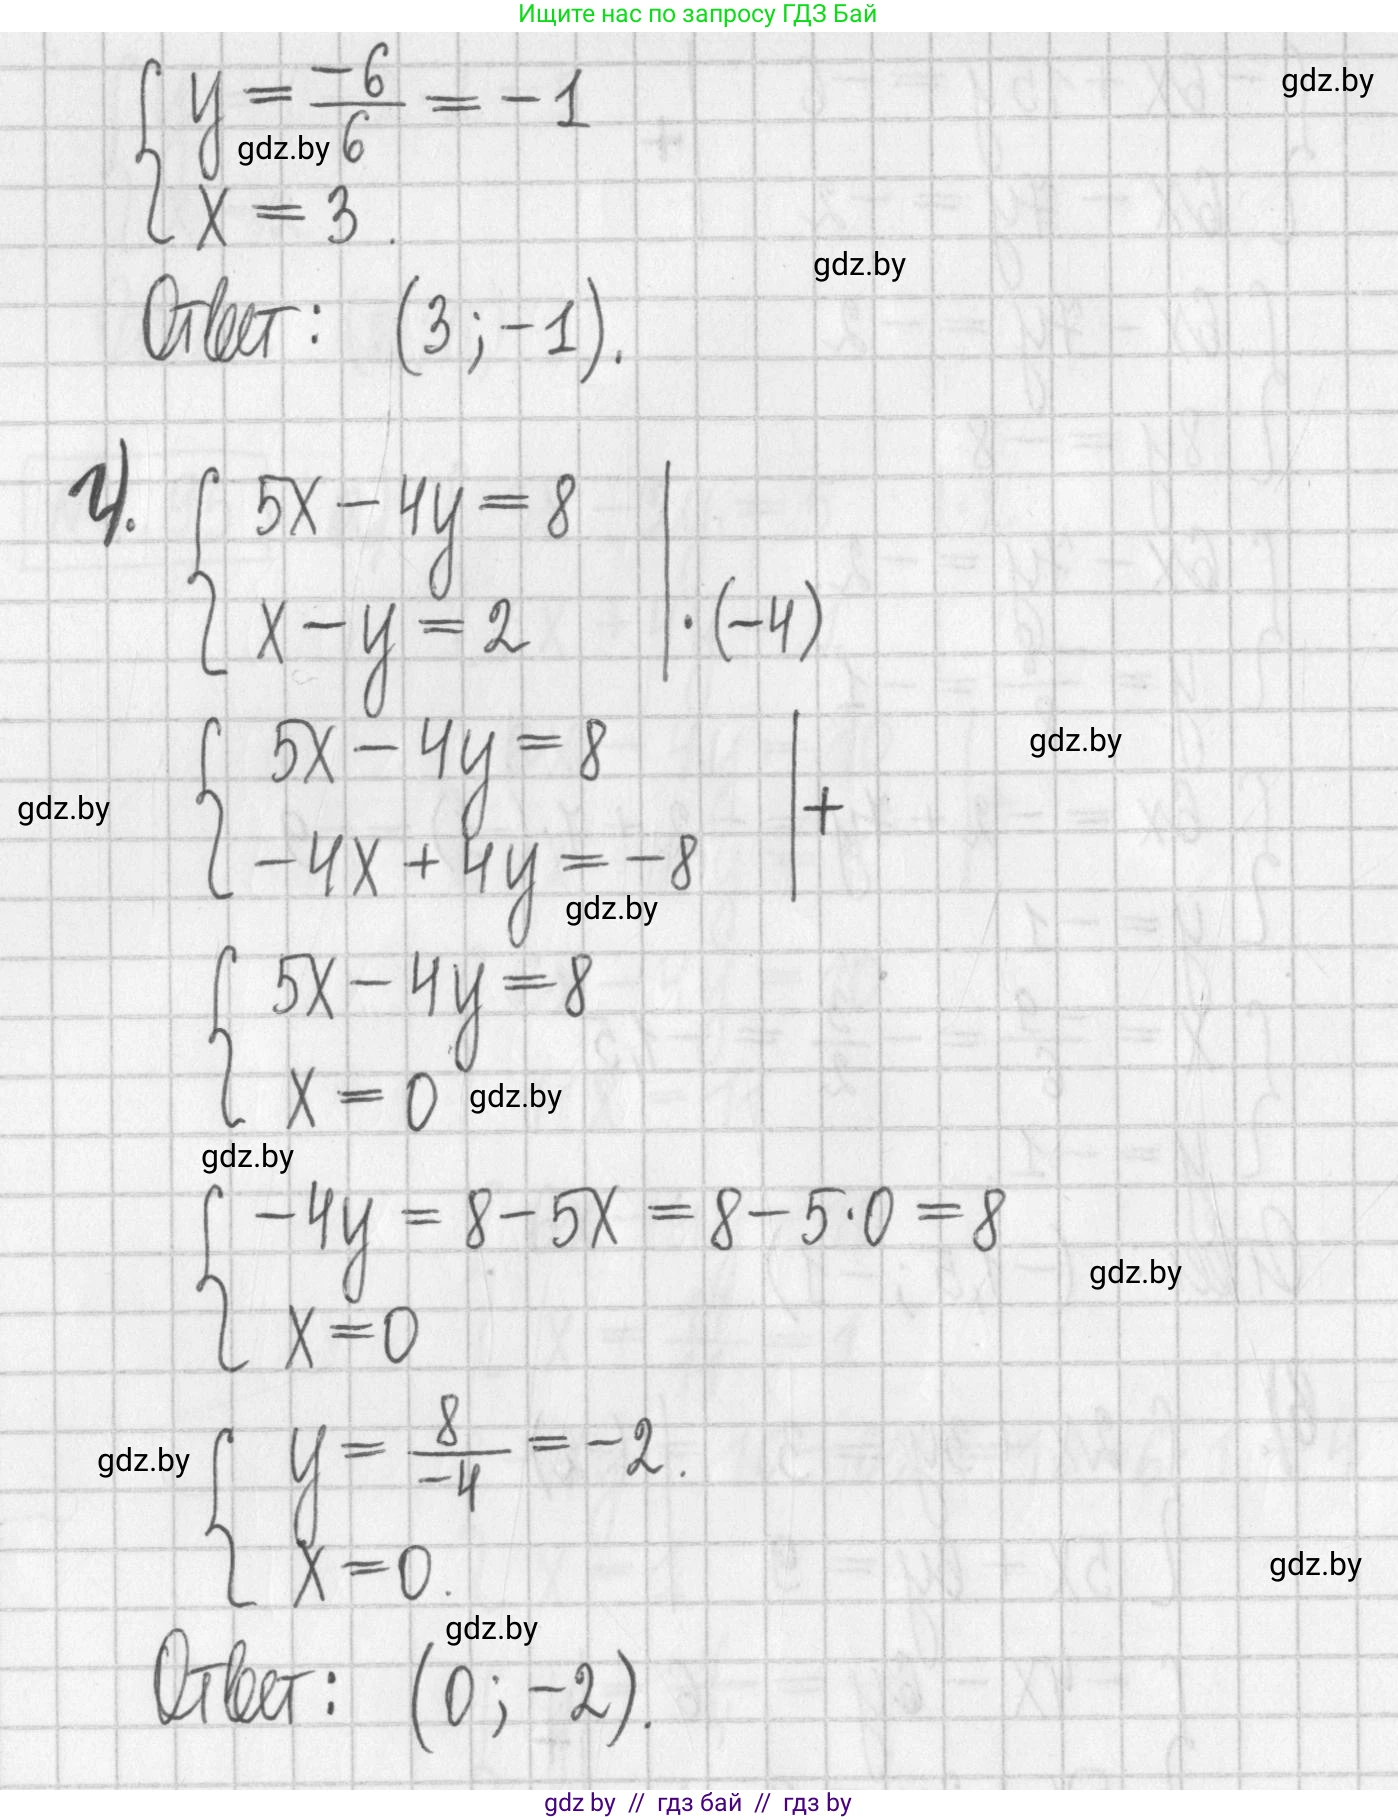 Ищите нас по запросу ГДЗ Бай
gdz.by
{ y = -6/6 = -1
gdz.by
x = 3.
gdz.by
Ответ: (3; -1).
г). { 5x - 4y = 8
x - y = 2 | · (-4)
{ 5x - 4y = 8
gdz.by
gdz.by
-4x + 4y = -8 | +
gdz.by
{ 5x - 4y = 8
x = 0
gdz.by
gdz.by
{ -4y = 8 - 5x = 8 - 5·0 = 8
gdz.by
x = 0
{ y = 8/-4 = -2.
gdz.by
x = 0.
gdz.by
gdz.by
Ответ: (0; -2).
gdz by // гдз бай // гдз by